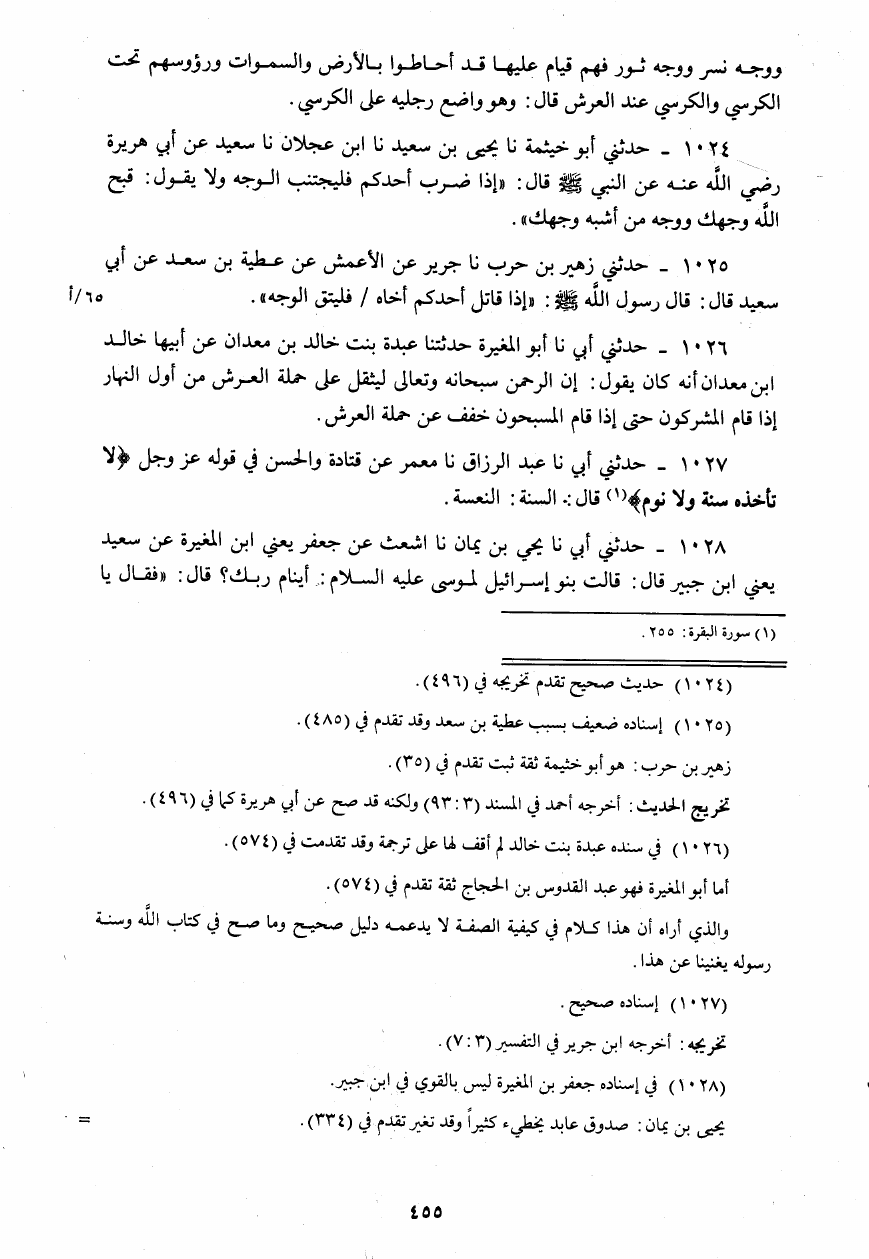 ووجه نسر ووجه ثور فهم قيام عليها قد أحاطوا بالأرض والسموات ورؤوسهم تحت
الكرسي والكرسي عند العرش قال: وهو واضع رجليه على الكرسي.
١٠٢٤ ـ حدثني أبو خيثمة نا يحيى بن سعيد نا ابن عجلان نا سعيد عن أبي هريرة
رضي اللَّه عنه عن النبي ﷺ قال: «إذا ضرب أحدكم فليجتنب الوجه ولا يقول: قبح
اللَّه وجهك ووجه من أشبه وجهك».
١٠٢٥ ـ حدثني زهير بن حرب نا جرير عن الأعمش عن عطية بن سعد عن أبي
سعيد قال: قال رسول اللَّه ﷺ: «إذا قاتل أحدكم أخاه / فليتق الوجه». ٦٥/أ
١٠٢٦ ـ حدثني أبي نا أبو المغيرة حدثتنا عبدة بنت خالد بن معدان عن أبيها خالد
ابن معدان أنه كان يقول: إن الرحمن سبحانه وتعالى ليثقل على حملة العرش من أول النهار
إذا قام المشركون حتى إذا قام المسبحون خفف عن حملة العرش.
١٠٢٧ ـ حدثني أبي نا عبد الرزاق نا معمر عن قتادة والحسن في قوله عز وجل ﴿لا
تأخذه سنة ولا نوم﴾(١) قال: السنة: النعسة.
١٠٢٨ ـ حدثني أبي نا يحي بن يمان نا اشعث عن جعفر يعني ابن المغيرة عن سعيد
يعني ابن جبير قال: قالت بنو إسرائيل لموسى عليه السلام: أينام ربك؟ قال: «فقال يا
(١) سورة البقرة: ٢٥٥.
(١٠٢٤) حديث صحيح تقدم تخريجه في (٤٩٦).
(١٠٢٥) إسناده ضعيف بسبب عطية بن سعد وقد تقدم في (٤٨٥).
زهير بن حرب: هو أبو خثيمة ثقة ثبت تقدم في (٣٥).
تخريج الحديث: أخرجه أحمد في المسند (٣: ٩٣) ولكنه قد صح عن أبي هريرة كما في (٤٩٦).
(١٠٢٦) في سنده عبدة بنت خالد لم أقف لها على ترجمة وقد تقدمت في (٥٧٤).
أما أبو المغيرة فهو عبد القدوس بن الحجاج ثقة تقدم في (٥٧٤).
والذي أراه أن هذا كلام في كيفية الصفة لا يدعمه دليل صحيح وما صح في كتاب اللَّه وسنة
رسوله يغنينا عن هذا.
(١٠٢٧) إسناده صحيح.
تخريجه: أخرجه ابن جرير في التفسير (٣: ٧).
(١٠٢٨) في إسناده جعفر بن المغيرة ليس بالقوي في ابن جبير.
يحيى بن يمان: صدوق عابد يخطيء كثيراً وقد تغير تقدم في (٣٣٤).
=
٤٥٥